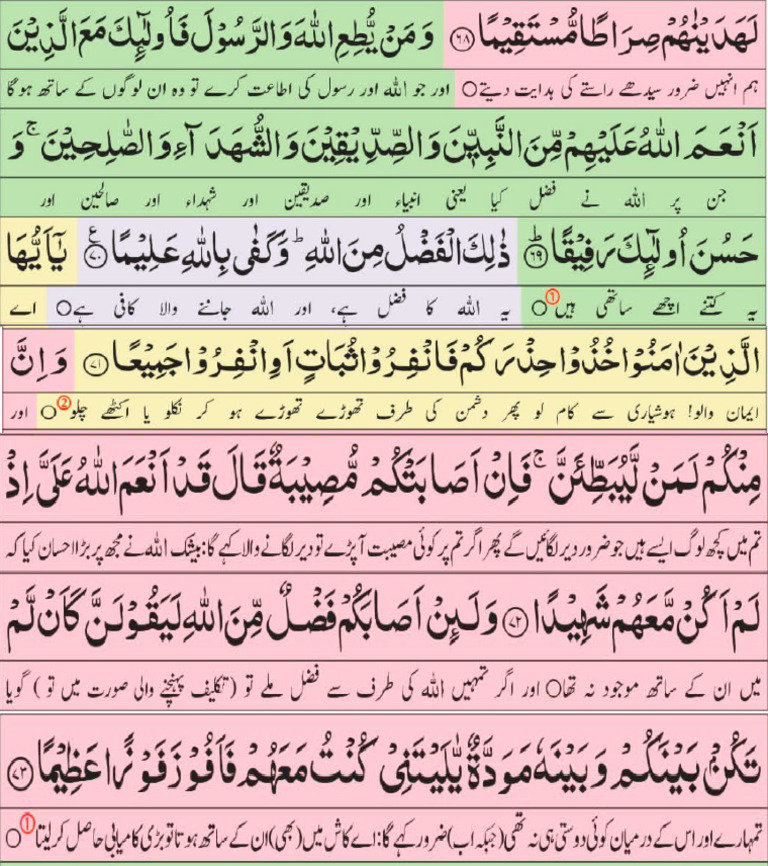 لَهَدَيْنٰهُمْ صِرَاطًا مُّسْتَقِيْمًا ﴿۶۸﴾ وَ مَنْ يُّطِعِ اللّٰهَ وَ الرَّسُوْلَ فَاُولٰٓئِكَ مَعَ الَّذِيْنَ
ہم انہیں ضرور سیدھے راستے کی ہدایت دیتے○ اور جو اللہ اور رسول کی اطاعت کرے تو وہ ان لوگوں کے ساتھ ہوگا
اَنْعَمَ اللّٰهُ عَلَيْهِمْ مِّنَ النَّبِيّٖنَ وَ الصِّدِّيْقِيْنَ وَ الشُّهَدَآءِ وَ الصّٰلِحِيْنَ ۚ وَ
جن پر اللہ نے فضل کیا یعنی انبیاء اور صدیقین اور شہداء اور صالحین اور
حَسُنَ اُولٰٓئِكَ رَفِيْقًا ﴿ؕ۶۹﴾ ذٰلِكَ الْفَضْلُ مِنَ اللّٰهِ ؕ وَ كَفٰى بِاللّٰهِ عَلِيْمًا ﴿۷۰﴾ ع يٰۤاَيُّهَا
یہ کتنے اچھے ساتھی ہیں(1)○ یہ اللہ کا فضل ہے، اور اللہ جاننے والا کافی ہے○ اے
الَّذِيْنَ اٰمَنُوْا خُذُوْا حِذْرَكُمْ فَانْفِرُوْا ثُبَاتٍ اَوِ انْفِرُوْا جَمِيْعًا ﴿۷۱﴾ وَ اِنَّ
ایمان والو! ہوشیاری سے کام لو پھر دشمن کی طرف تھوڑے تھوڑے ہو کر نکلو یا اکٹھے چلو(2)○ اور
مِنْكُمْ لَمَنْ لَّيُبَطِّئَنَّ ۚ فَاِنْ اَصَابَتْكُمْ مُّصِيْبَةٌ قَالَ قَدْ اَنْعَمَ اللّٰهُ عَلَيَّ اِذْ
تم میں کچھ لوگ ایسے ہیں جو ضرور دیر لگائیں گے پھر اگر تم پر کوئی مصیبت آپڑے تو دیر لگانے والا کہے گا: بیشک اللہ نے مجھ پر بڑا احسان کیا کہ
لَمْ اَكُنْ مَّعَهُمْ شَهِيْدًا ﴿۷۲﴾ وَ لَىِٕنْ اَصَابَكُمْ فَضْلٌ مِّنَ اللّٰهِ لَيَقُوْلَنَّ كَاَنْ لَّمْ
میں ان کے ساتھ موجود نہ تھا○ اور اگر تمہیں اللہ کی طرف سے فضل ملے تو (تکلیف پہنچنے والی صورت میں تو) گویا
تَكُنْۢ بَيْنَكُمْ وَ بَيْنَهٗ مَوَدَّةٌ يّٰلَيْتَنِيْ كُنْتُ مَعَهُمْ فَاَفُوْزَ فَوْزًا عَظِيْمًا ﴿۷۳﴾
تمہارے اور اس کے درمیان کوئی دوستی ہی نہ تھی (جبکہ اب) ضرور کہے گا: اے کاش میں (بھی) ان کے ساتھ ہوتا تو بڑی کامیابی حاصل کرلیتا(1)○